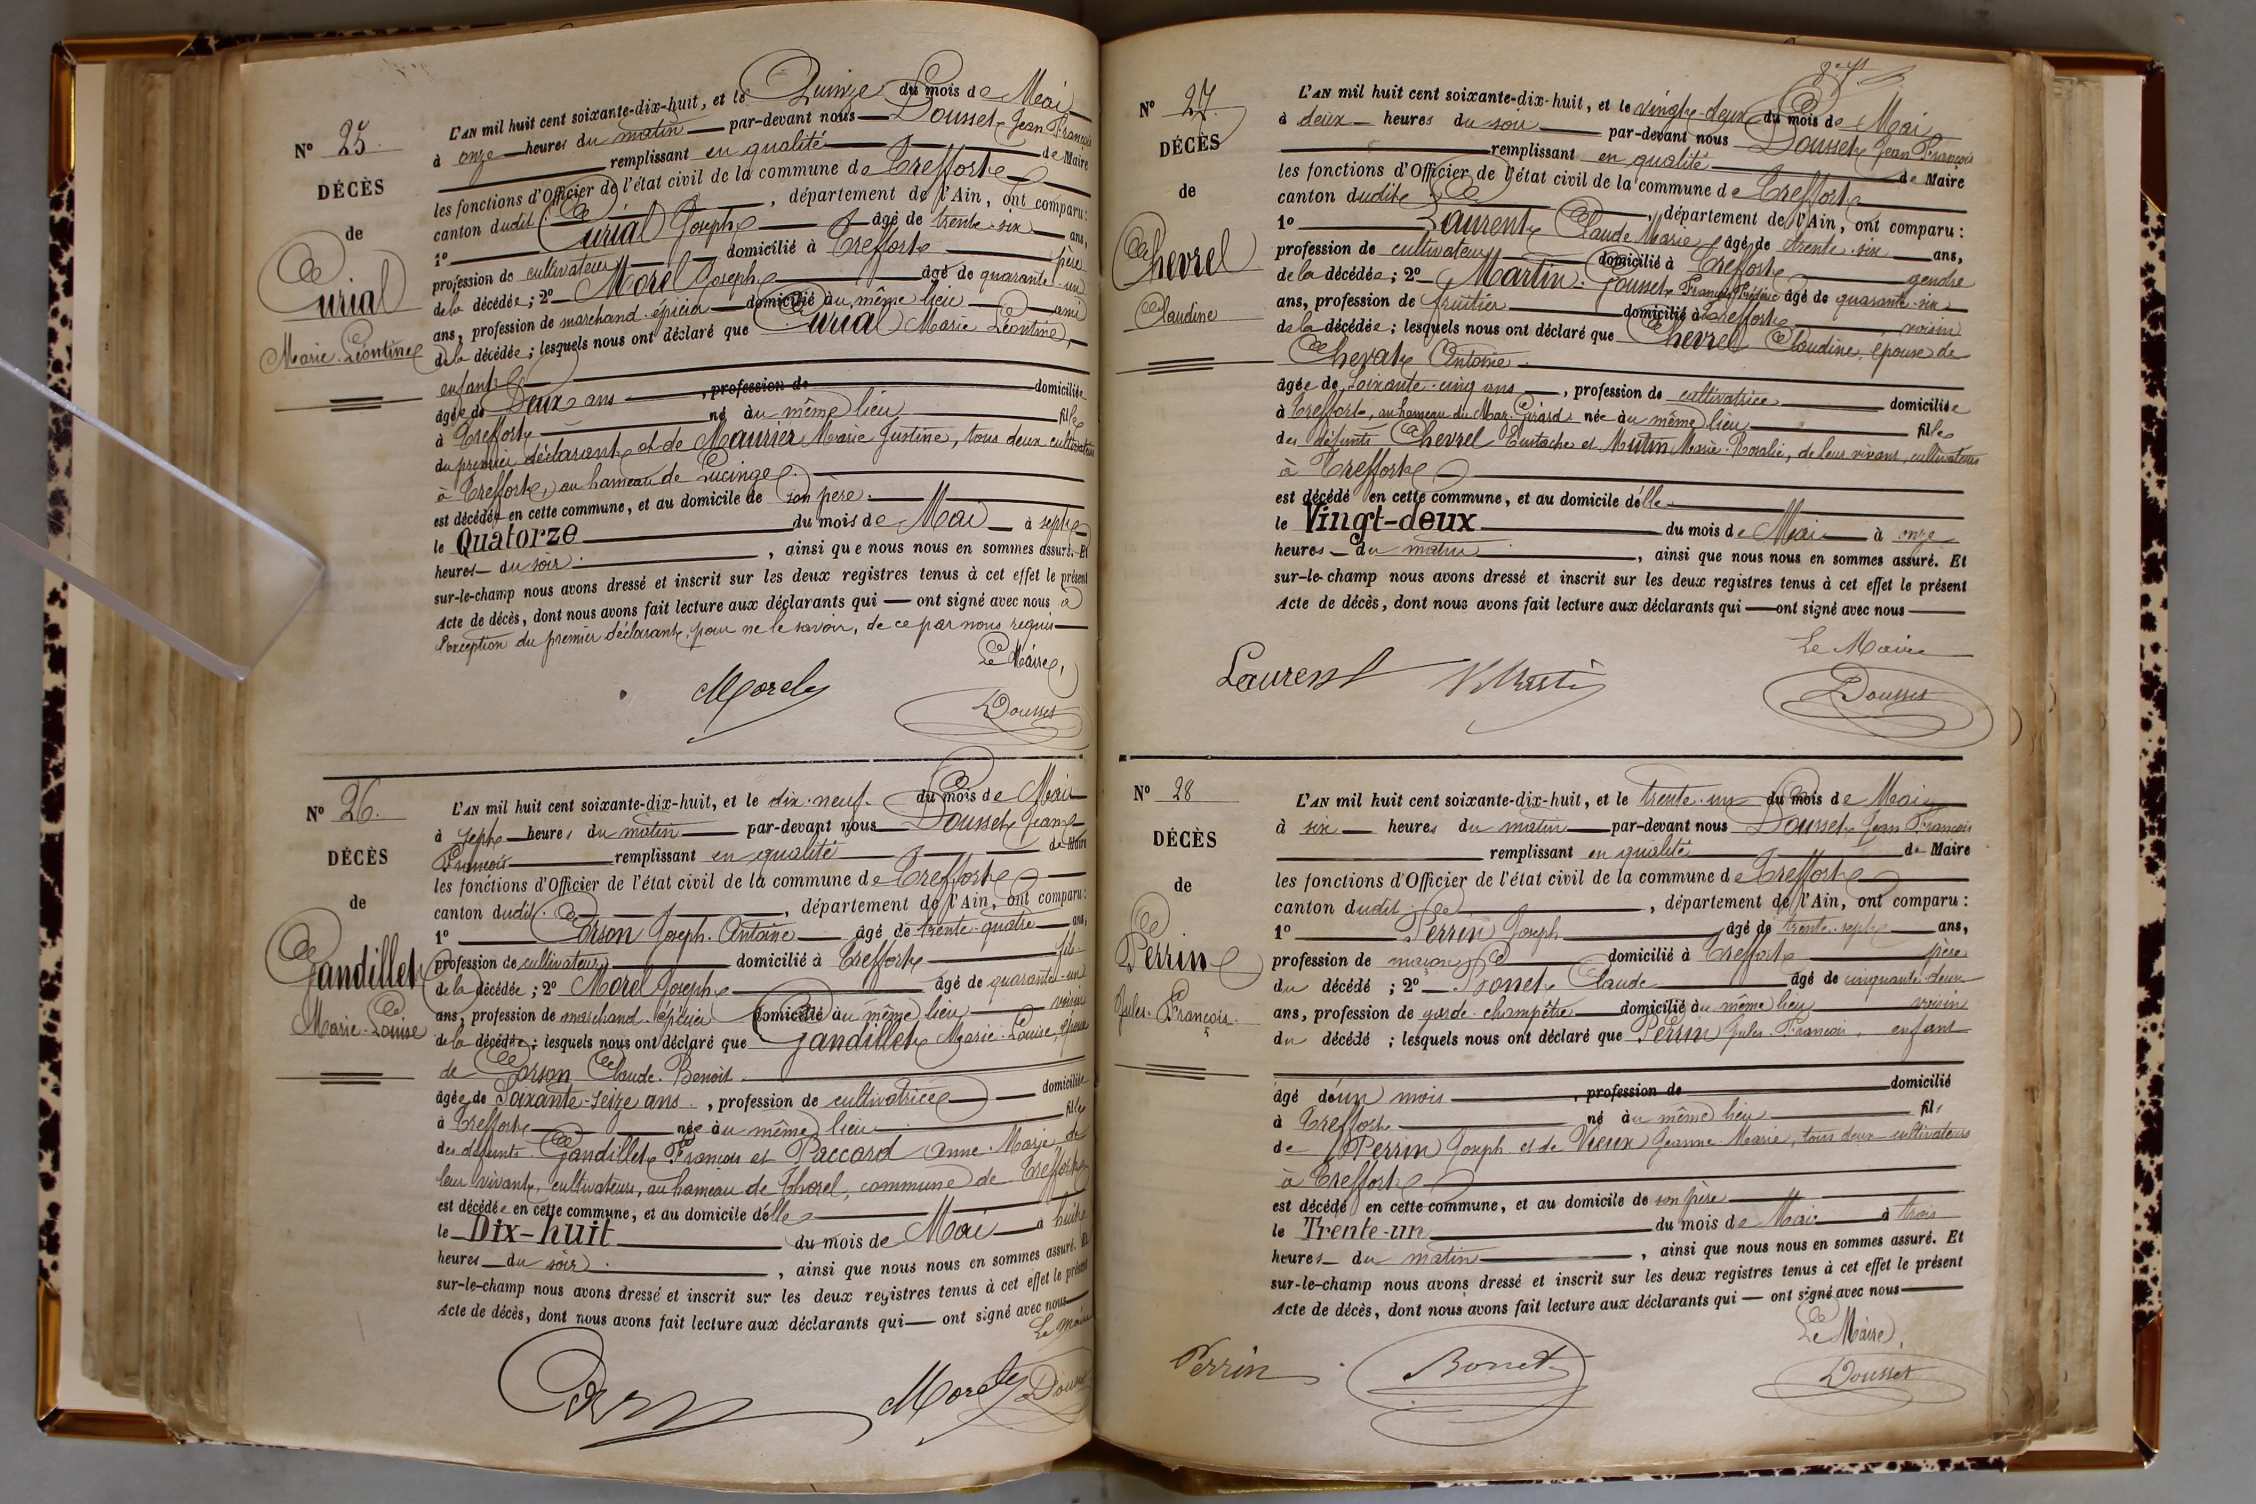 Nº 25.
DÉCÈS
de
Curial
Marie Léontine
L'AN mil huit cent soixante-dix-huit, et le Quinze du mois de Mai
à onze heures du matin par-devant nous Dousset Jean François
remplissant en qualité de Maire
les fonctions d'Officier de l'état civil de la commune de Treffort
canton dudit, département de l'Ain, ont comparu :
1º Curial Joseph âgé de trente-six ans,
profession de cultivateur domicilié à Treffort père
de la décédée ; 2º Morel Joseph âgé de quarante-un
ans, profession de marchand-épicier domicilié au même lieu ami
de la décédée ; lesquels nous ont déclaré que Curial Marie Léontine,
enfant
âgée de Deux ans, profession de domiciliée
à Treffort né au même lieu, fille
du premier déclarant et de Maurier Marie Justine, tous deux cultivateurs
à Treffort, au hameau de Lucinge
est décédée en cette commune, et au domicile de son père.
le Quatorze du mois de Mai à sept
heures du soir, ainsi que nous nous en sommes assuré. Et
sur-le-champ nous avons dressé et inscrit sur les deux registres tenus à cet effet le présent
Acte de décès, dont nous avons fait lecture aux déclarants qui ont signé avec nous à
l'exception du premier déclarant, pour ne le savoir, de ce par nous requis
Le Maire,
Morel
Dousset
Nº 26.
DÉCÈS
de
Gandillet
Marie-Louise
L'AN mil huit cent soixante-dix-huit, et le dix-neuf du mois de Mai
à sept heures du matin par-devant nous Dousset Jean
François remplissant en qualité de Maire
les fonctions d'Officier de l'état civil de la commune de Treffort
canton dudit, département de l'Ain, ont comparu :
1º Corson Joseph-Antoine âgé de trente-quatre ans,
profession de cultivateur domicilié à Treffort fils
de la décédée ; 2º Morel Joseph âgé de quarante-un
ans, profession de marchand-épicier domicilié au même lieu voisin
de la décédée ; lesquels nous ont déclaré que Gandillet Marie-Louise, épouse
de Corson Claude-Benoit
âgée de Soixante-seize ans, profession de cultivatrice domiciliée
à Treffort née au même lieu fille
des défunts Gandillet François et Paccard Anne-Marie de
leur vivant, cultivateurs, au hameau de Thorel, commune de Treffort
est décédée en cette commune, et au domicile d'elle
le Dix-huit du mois de Mai à huit
heures du soir, ainsi que nous nous en sommes assuré. Et
sur-le-champ nous avons dressé et inscrit sur les deux registres tenus à cet effet le présent
Acte de décès, dont nous avons fait lecture aux déclarants qui ont signé avec nous
Le Maire
Morel
Dousset
Nº 27.
DÉCÈS
de
Chevrel
Claudine
L'AN mil huit cent soixante-dix-huit, et le vingt-deux du mois de Mai
à deux heures du soir par-devant nous Dousset Jean François
remplissant en qualité de Maire
les fonctions d'Officier de l'état civil de la commune de Treffort
canton dudit, département de l'Ain, ont comparu :
1º Laurent Claude Marie âgé de trente-six ans,
profession de cultivateur domicilié à Treffort gendre
de la décédée ; 2º Martin-Gousset François Frédéric âgé de quarante-six
ans, profession de fruitier domicilié à Treffort voisin
de la décédée ; lesquels nous ont déclaré que Chevrel Claudine, épouse de
Chevat Antoine
âgée de Soixante-cinq ans, profession de cultivatrice domiciliée
à Treffort, au hameau du Mas-Girard née au même lieu fille
des défunts Chevrel Eustache et Mutin Marie-Rosalie, de leur vivant, cultivateurs
à Treffort
est décédé en cette commune, et au domicile d'elle
le Vingt-deux du mois de Mai à onze
heures du matin, ainsi que nous nous en sommes assuré. Et
sur-le-champ nous avons dressé et inscrit sur les deux registres tenus à cet effet le présent
Acte de décès, dont nous avons fait lecture aux déclarants qui ont signé avec nous
Le Maire
Laurent
Dousset
Nº 28
DÉCÈS
de
Perrin
Jules-François
L'AN mil huit cent soixante-dix-huit, et le trente-un du mois de Mai
à six heures du matin par-devant nous Dousset Jean François
remplissant en qualité de Maire
les fonctions d'Officier de l'état civil de la commune de Treffort
canton dudit, département de l'Ain, ont comparu :
1º Perrin Joseph âgé de trente-sept ans,
profession de maçon domicilié à Treffort père
du décédé ; 2º Bonet Claude âgé de cinquante-deux
ans, profession de garde-champêtre domicilié au même lieu voisin
du décédé ; lesquels nous ont déclaré que Perrin Jules-François, enfant
âgé d'un mois, profession de domicilié
à Treffort né au même lieu fils
de Perrin Joseph et de Vieux Jeanne Marie, tous deux cultivateurs
à Treffort
est décédé en cette commune, et au domicile de son père
le Trente-un du mois de Mai à trois
heures du matin, ainsi que nous nous en sommes assuré. Et
sur-le-champ nous avons dressé et inscrit sur les deux registres tenus à cet effet le présent
Acte de décès, dont nous avons fait lecture aux déclarants qui ont signé avec nous
Le Maire,
Perrin
Bonet
Dousset